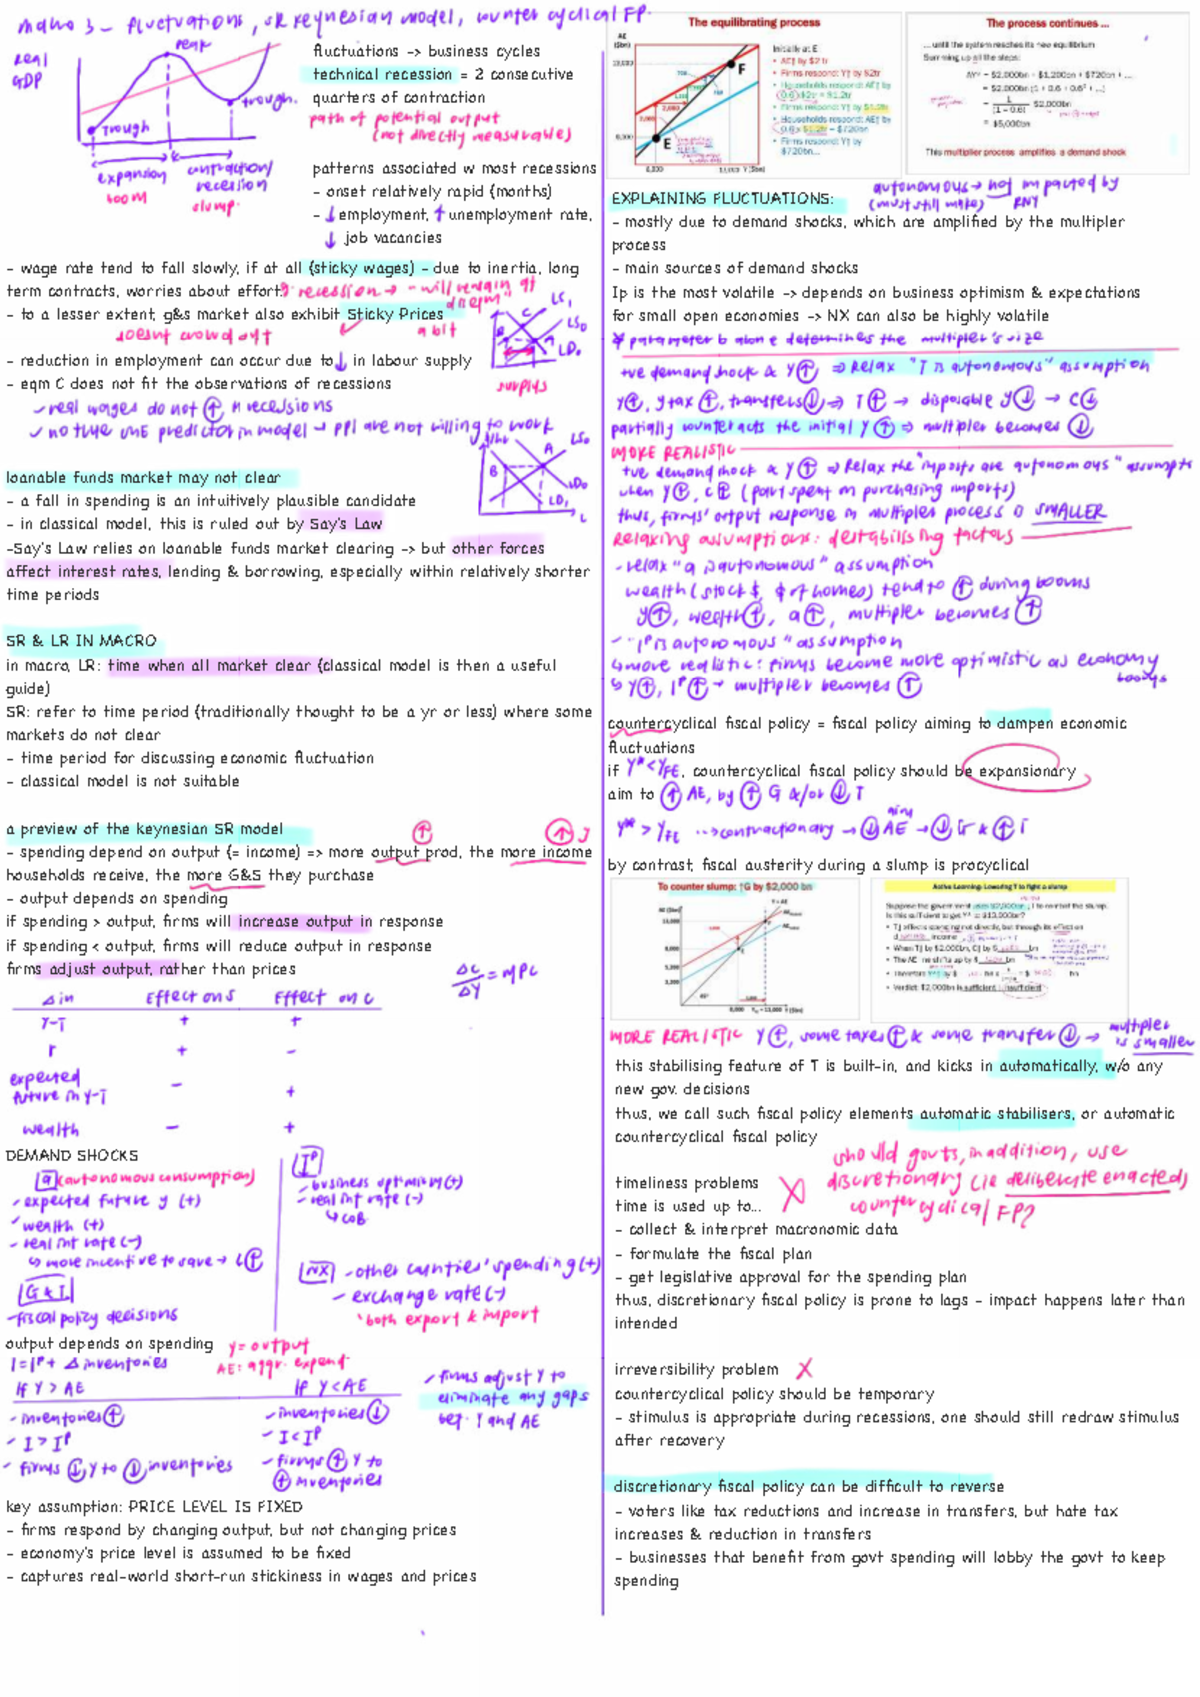 macro 3 – fluctuations, SR keynesian model, counter cyclical FP.
real GDP
peak
trough
trough.
expansion
boom
contraction/ recession
slump.
fluctuations -> business cycles
technical recession = 2 consecutive
quarters of contraction
path of potential output
(not directly measurable)
patterns associated w most recessions
- onset relatively rapid (months)
- ↓ employment, ↑ unemployment rate,
↓ job vacancies
- wage rate tend to fall slowly, if at all (sticky wages) - due to inertia, long
term contracts, worries about effort
- to a lesser extent, g&s market also exhibit Sticky Prices
a bit
doesn't crowd out
- reduction in employment can occur due to ↓ in labour supply
- eqm C does not fit the observations of recessions
- real wages do not ↑ in recessions
surplus
loanable funds market may not clear
- a fall in spending is an intuitively plausible candidate
- in classical model, this is ruled out by Say's Law
-Say's Law relies on loanable funds market clearing -> but other forces
affect interest rates, lending & borrowing, especially within relatively shorter
time periods
SR & LR IN MACRO
in macro, LR: time when all market clear (classical model is then a useful
guide)
SR: refer to time period (traditionally thought to be a yr or less) where some
markets do not clear
- time period for discussing economic fluctuation
- classical model is not suitable
a preview of the keynesian SR model
- spending depend on output (= income) => more output prod, the more income
households receive, the more G&S they purchase
- output depends on spending
if spending > output, firms will increase output in response
if spending < output, firms will reduce output in response
firms adjust output, rather than prices
ΔC/ΔY = MPC
Δ in Effect on S Effect on C
Y-T + +
r + -
expected future in Y-T - +
wealth - +
DEMAND SHOCKS
a (autonomous consumption)
- expected future y (+)
- wealth (+)
- real int rate (-)
↳ more incentive to save → C↓
G & T
- fiscal policy decisions
I^P
- business optimism (+)
- real int rate (-)
↳ COB
NX - other countries' spending (+)
- exchange rate (-)
* both export & import
output depends on spending Y = output
I = I^P + Δ inventories AE: aggr. expend.
If Y > AE If Y < AE
- inventories ↑ - inventories ↓
- I > I^P - I < I^P
- firms ↓ Y to ↓ inventories - firms ↑ Y to
↑ inventories
- firms adjust Y to
eliminate any gaps
bet. Y and AE
key assumption: PRICE LEVEL IS FIXED
- firms respond by changing output, but not changing prices
- economy's price level is assumed to be fixed
- captures real-world short-run stickiness in wages and prices
The equilibrating process
Initially at E
• AE↑ by $2tr
• Firms respond: Y↑ by $2tr
• Households respond: AE↑ by
0.6x$2tr = $1.2tr
• Firms respond: Y↑ by $1.2tr
• Households respond: AE↑ by
0.6x $1.2tr = $720bn
• Firms respond: Y↑ by
$720bn...
The process continues ...
... until the system reaches its new equilibrium
Summing up all the steps:
ΔY* = $2,000bn + $1,200bn + $720bn + ...
= $2,000bn (1 + 0.6 + 0.6² + ...)
= 1/(1 - 0.6) $2,000bn
= $5,000bn
This multiplier process amplifies a demand shock
EXPLAINING FLUCTUATIONS:
autonomous → not impacted by
- mostly due to demand shocks, which are amplified by the multipler
process
- main sources of demand shocks
Ip is the most volatile -> depends on business optimism & expectations
for small open economies -> NX can also be highly volatile
* parameter b alone determines the multiplier's size
+ve demand shock & Y↑ ⇒ Relax "T is autonomous" assumption
Y↑, y tax ↑, transfers ↓ ⇒ T↑ → disposable y↓ → C↓
partially counteracts the initial Y↑ ⇒ multiplier becomes ↓
MORE REALISTIC
+ve demand shock & Y↑ ⇒ Relax the "imports are autonomous" assumpt
when Y↑, C↑ (part spent on purchasing imports)
thus, firms' output response in multiplier process is SMALLER
Relaxing assumptions: destabilising factors
- relax "a is autonomous" assumption
wealth (stock $, $ of homes) tend to ↑ during booms
Y↑, wealth↑, a↑, multiplier becomes ↑
- "I^P is autonomous" assumption
↳ more realistic: firms become more optimistic as economy
booms
↳ Y↑, I^P↑ → multiplier becomes ↑
countercyclical fiscal policy = fiscal policy aiming to dampen economic
fluctuations
if Y* < Y_FE, countercyclical fiscal policy should be expansionary
aim to ↑ AE, by ↑ G &/or ↓ T
Y* > Y_FE → contractionary → ↓ AE → ↓ G & ↑ T
by contrast, fiscal austerity during a slump is procyclical
To counter slump: ↑G by $2,000 bn
Active Learning: Lowering T to fight a slump
MORE REALISTIC Y↑, some taxes ↑ & some transfer ↓ → multiplier
is smaller
this stabilising feature of T is built-in, and kicks in automatically, w/o any
new gov. decisions
thus, we call such fiscal policy elements automatic stabilisers, or automatic
countercyclical fiscal policy
should govts, in addition, use
discretionary (ie deliberate enacted)
countercyclical FP?
timeliness problems
time is used up to...
- collect & interpret macronomic data
- formulate the fiscal plan
- get legislative approval for the spending plan
thus, discretionary fiscal policy is prone to lags - impact happens later than
intended
irreversibility problem
countercyclical policy should be temporary
- stimulus is appropriate during recessions, one should still redraw stimulus
after recovery
discretionary fiscal policy can be difficult to reverse
- voters like tax reductions and increase in transfers, but hate tax
increases & reduction in transfers
- businesses that benefit from govt spending will lobby the govt to keep
spending